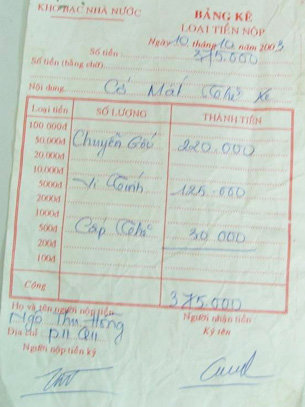 KHO BẠC NHÀ NƯỚC
BẢNG KÊ
LOẠI TIỀN NỘP
Ngày 10 tháng 10 năm 2003
Số tiền 375.000
Số tiền (bằng chữ)
Nội dung
Loại tiền SỐ LƯỢNG THÀNH TIỀN
100.000đ
50.000đ Chuyển 220.000
20.000đ
10.000đ
5000đ Vi tính 125.000
2000đ
1000đ
500đ Cấp 30.000
200đ
100đ
Cộng 375.000
Họ và tên người nộp tiền Người nhận tiền
Ngô Thu Hồng Ký tên
Địa chỉ
Người nộp tiền ký